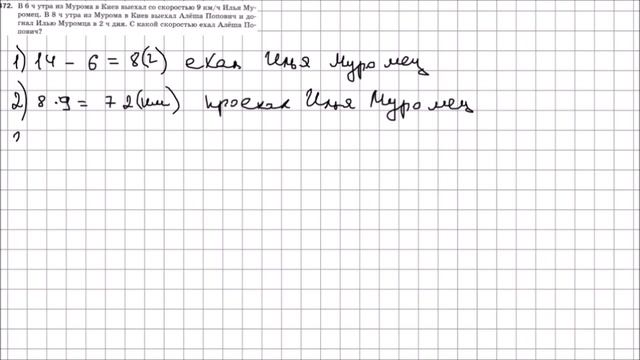 472. В 6 ч утра из Мурома в Киев выехал со скоростью 9 км/ч Илья Му-
ромец. В 8 ч утра из Мурома в Киев выехал Алёша Попович и до-
гнал Илью Муромца в 2 ч дня. С какой скоростью ехал Алёша По-
пович?
1) 14 - 6 = 8(ч) ехал Илья Муромец
2) 8 · 9 = 72(км) проехал Илья Муромец